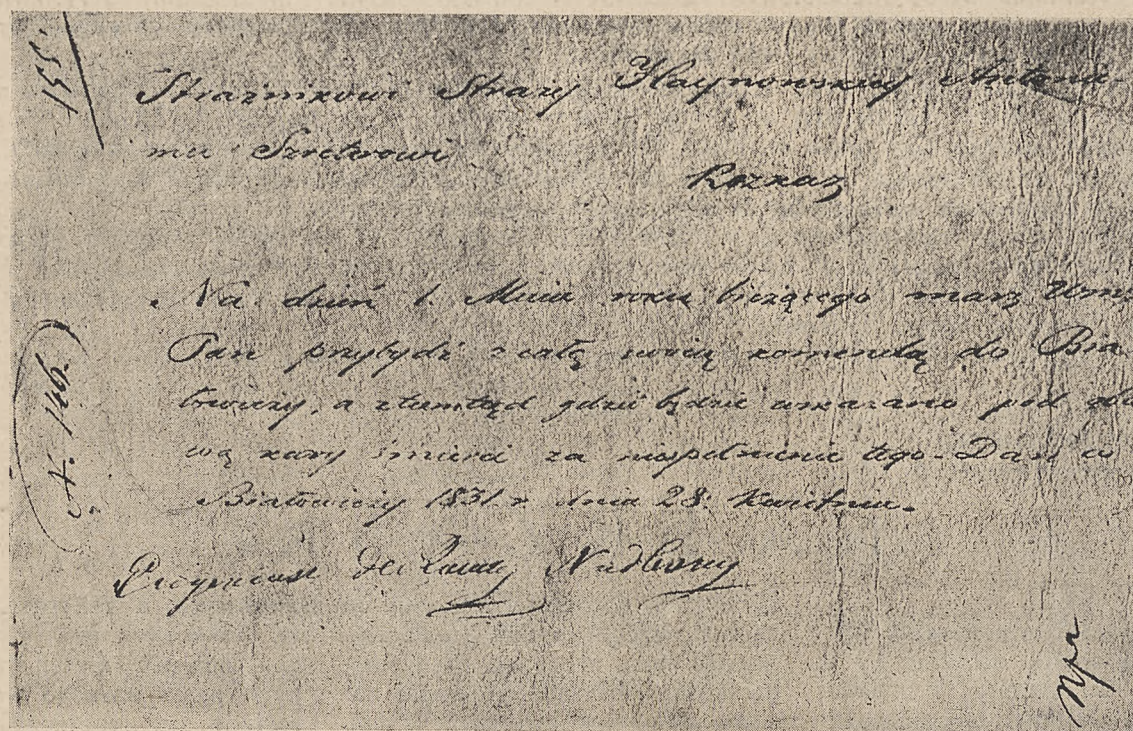 155.
Strażnikowi Straży Haynowskiey Antonie-
mu Szreterowi
Rozkaz
Na dzień 1. Maia roku bieżącego masz
Pan przybydź z całą swoią komendą do Bia
łowieży, a ztamtąd gdzie będzie wskazano pod
wą kary śmierci za niespełnienie tego. Dan w
Białowieży 1831 r. dnia 28. Kwietnia.
de Ronney Nadleśny
A. 146.